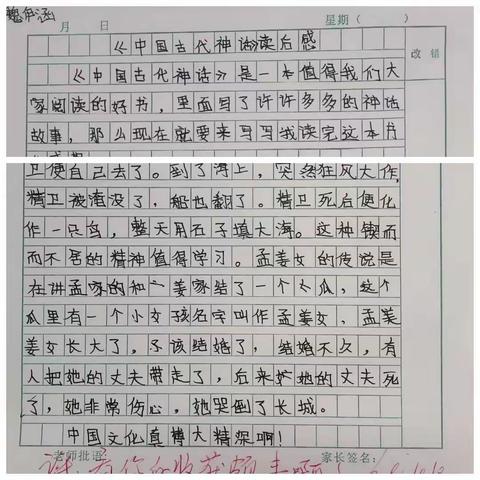 月 日 星期（ ）
《中国古代神话》读后感
改错
《中国古代神话》是一本值得我们大
家阅读的好书，里面写了许许多多的神话
故事，那么现在就要来写写我读完这本书
卫便自己去了。到了海上，突然狂风大作，
精卫被淹没了，船也翻了。精卫死后便化
作一只鸟，整天用石子填大海。这种锲而
而不居的精神值得学习。孟姜女的传说是
在讲孟家的和一姜家结了一个大瓜，这个
瓜里有一个小女孩名字叫作孟姜女，孟姜
姜女长大了，该结婚了，结婚不久，有
人把她的丈夫带走了，后来她的丈夫死
了，她非常伤心，她哭倒了长城。
中国文化真博大精深啊！
老师批语： 家长签名：